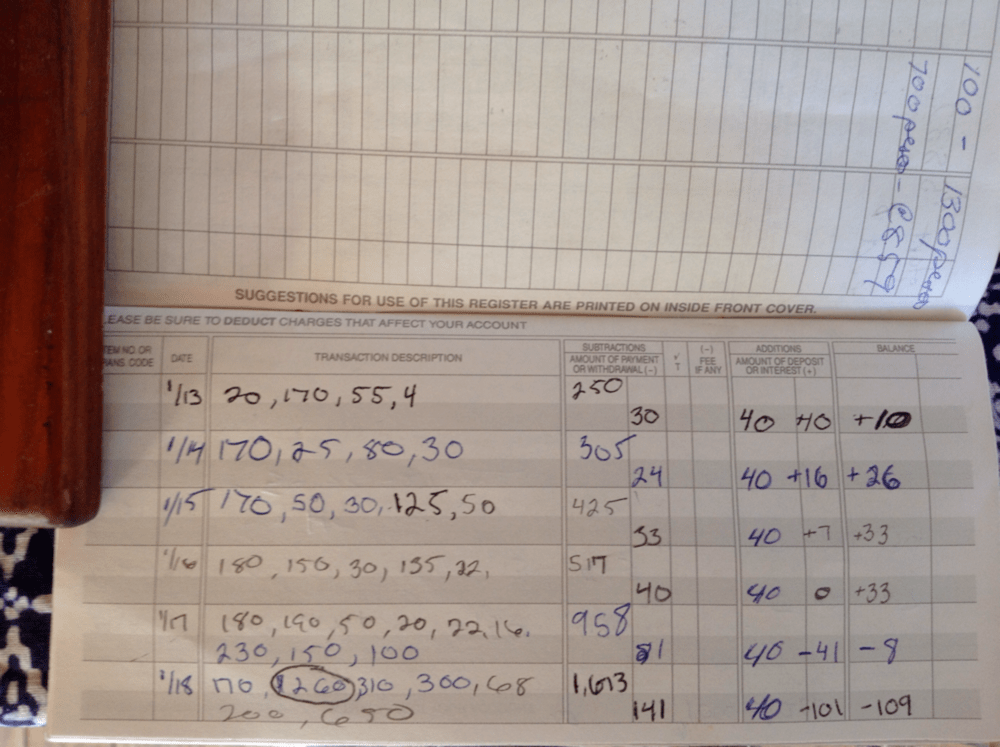 100 - 1300 pesos
700 pesos -
SUGGESTIONS FOR USE OF THIS REGISTER ARE PRINTED ON INSIDE FRONT COVER.
LEASE BE SURE TO DEDUCT CHARGES THAT AFFECT YOUR ACCOUNT
TEM NO. OR RANS. CODE DATE TRANSACTION DESCRIPTION SUBTRACTIONS AMOUNT OF PAYMENT OR WITHDRAWAL (-) √ T (-) FEE IF ANY ADDITIONS AMOUNT OF DEPOSIT OR INTEREST (+) BALANCE
1/13 20, 170, 55, 4 250
30 40 +10 +10
1/14 170, 25, 80, 30 305
24 40 +16 +26
1/15 170, 50, 30, 125, 50 425
33 40 +7 +33
1/16 180, 150, 30, 135, 22, 517
40 40 0 +33
1/17 180, 190, 50, 20, 22, 16, 958
230, 150, 100 81 40 -41 -8
1/18 170, 1260, 310, 300, 68 1,613
200, 650 141 40 -101 -109